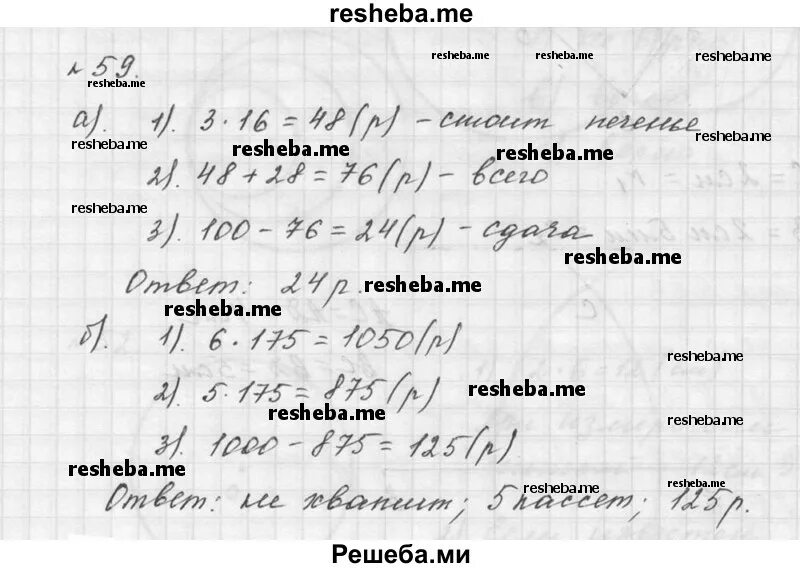 resheba.me
resheba.me resheba.me resheba.me
№ 59.
resheba.me
а). 1). 3 · 16 = 48 (р) – стоит печенье
resheba.me resheba.me resheba.me resheba.me
2). 48 + 28 = 76 (р) – всего
resheba.me
3). 100 – 76 = 24 (р) – сдача
resheba.me
Ответ: 24 р.
resheba.me
resheba.me
б). 1). 6 · 175 = 1050 (р)
resheba.me
2). 5 · 175 = 875 (р)
resheba.me
resheba.me
resheba.me
3). 1000 – 875 = 125 (р)
resheba.me
resheba.me resheba.me
Ответ: не хватит; 5 кассет; 125 р.
Решеба.ми